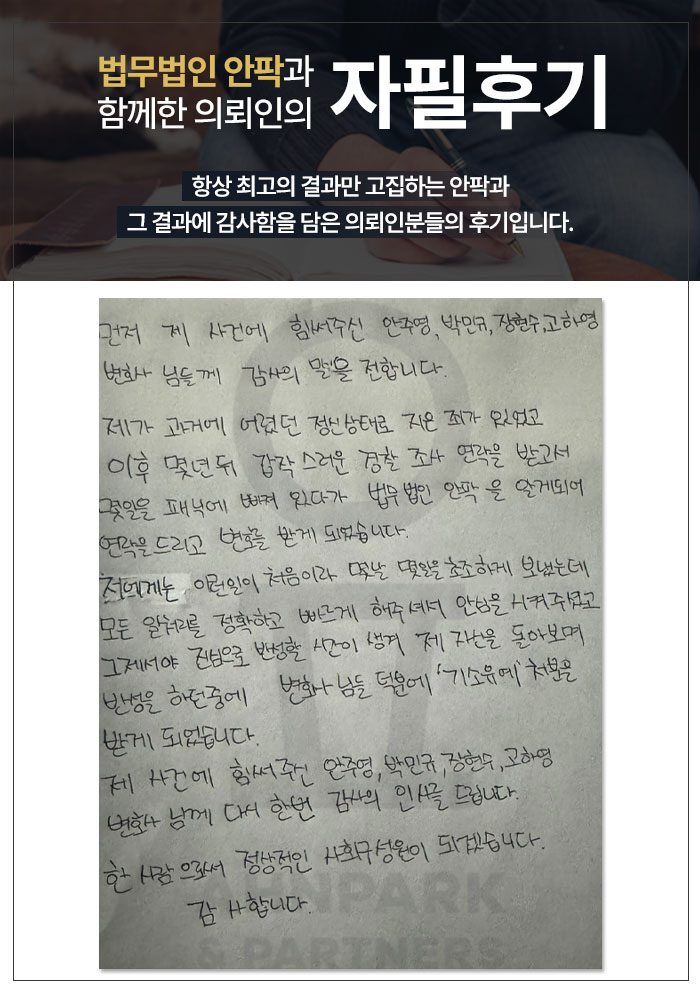 법무법인 안팍과
함께한 의뢰인의
자필후기
항상 최고의 결과만 고집하는 안팍과
그 결과에 감사함을 담은 의뢰인분들의 후기입니다.
먼저 제 사건에 힘써주신 안주영, 박민규, 장현수, 고하영
변호사 님들께 감사의 말을 전합니다.
제가 과거에 어렸던 정신상태로 지은 죄가 있었고
이후 몇년뒤 갑작스러운 경찰 조사 연락을 받고서
몇일을 패닉에 빠져 있다가 법무법인 안팍 을 알게되어
연락을드리고 변호를 받게 되었습니다.
저에게는 이런일이 처음이라 몇날 몇일을초조하게 보냈는데
모든 일처리를 정확하고 빠르게 해주셔서 안심을 시켜주셨고
그제서야 진심으로 반성할 시간이 생겨 제 자신을 돌아보며
반성을 하던중에 변호사 님들 덕분에 '기소유예' 처분을
받게 되었습니다.
제 사건에 힘써주신 안주영, 박민규, 장현수, 고하영
변호사 님께 다시 한번 감사의 인사를 드립니다.
한 사람으로서 정상적인 사회구성원이 되겠습니다.
감사합니다.
AHNPARK
& PARTNERS